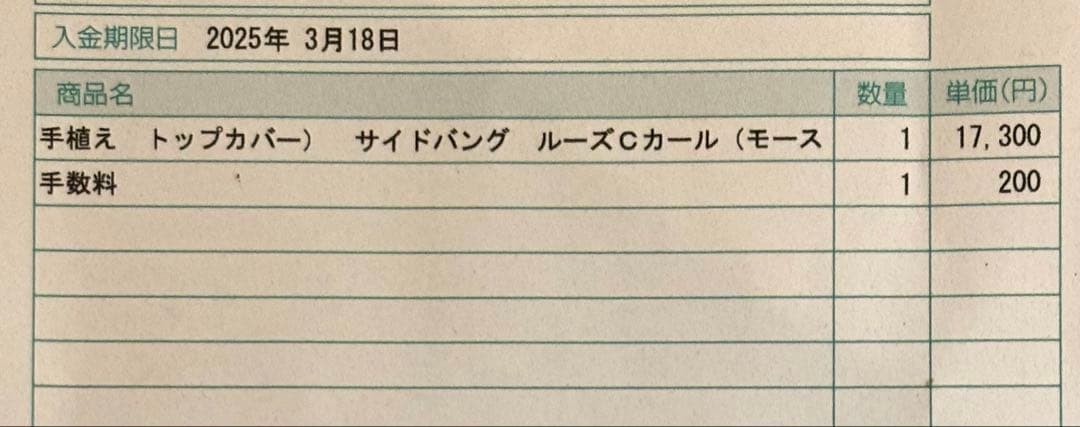 入金期限日 2025年 3月18日
商品名 数量 単価(円)
手植え トップカバー) サイドバング ルーズCカール(モース 1 17,300
手数料 1 200